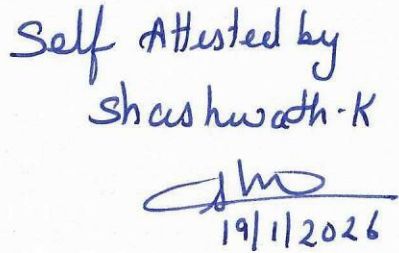 Self Attested by
Shashwath-K
19/1/2026